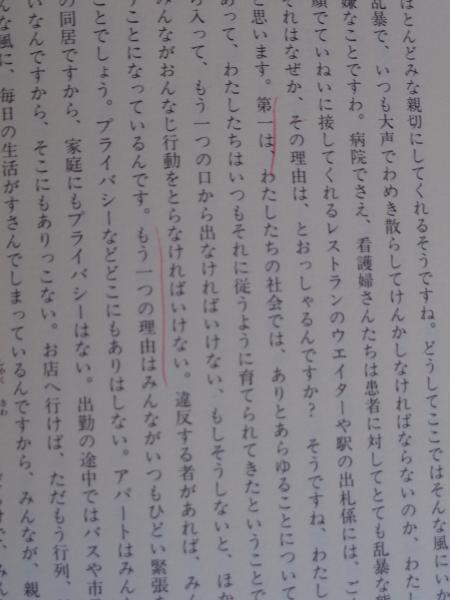 はとんどみな親切にしてくれるそうですね。どうしてここではそんな風にいか
乱暴で、いつも大声でわめき散らしてけんかしなければならないのか、わたし
嫌なことですわ。病院でさえ、看護婦さんたちは患者に対してとても乱暴な態
顔でていねいに接してくれるレストランのウエイターや駅の出札係には、ご
それはなぜか、その理由は、とおっしゃるんですか？　そうですね、わたし
と思います。第一は、わたしたちの社会では、ありとあらゆることについて
あって、わたしたちはいつもそれに従うように育てられてきたということで
ら入って、もう一つの口から出なければいけない、もしそうしないと、ほか
みんながおんなじ行動をとらなければいけない。違反する者があれば、みん
すことになっているんです。もう一つの理由はみんながいつもひどい緊張を
ことでしょう。プライバシーなどどこにもありはしない。アパートはみん
の同居ですから、家庭にもプライバシーはない。出勤の途中ではバスや市
いなんですから、そこにもありっこない。お店へ行けば、ただもう行列、
んな風に、毎日の生活がすさんでしまっているんですから、みんなが、親